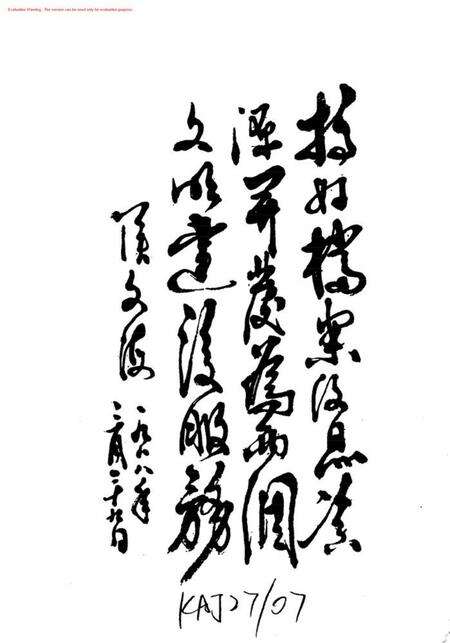 Evaluation Warning : The version can be used only for evaluation purpose.
搞好檔案信息資
源開發為两個
文明建設服務
文海
一九八八年
月二十九日
KAJ27/07